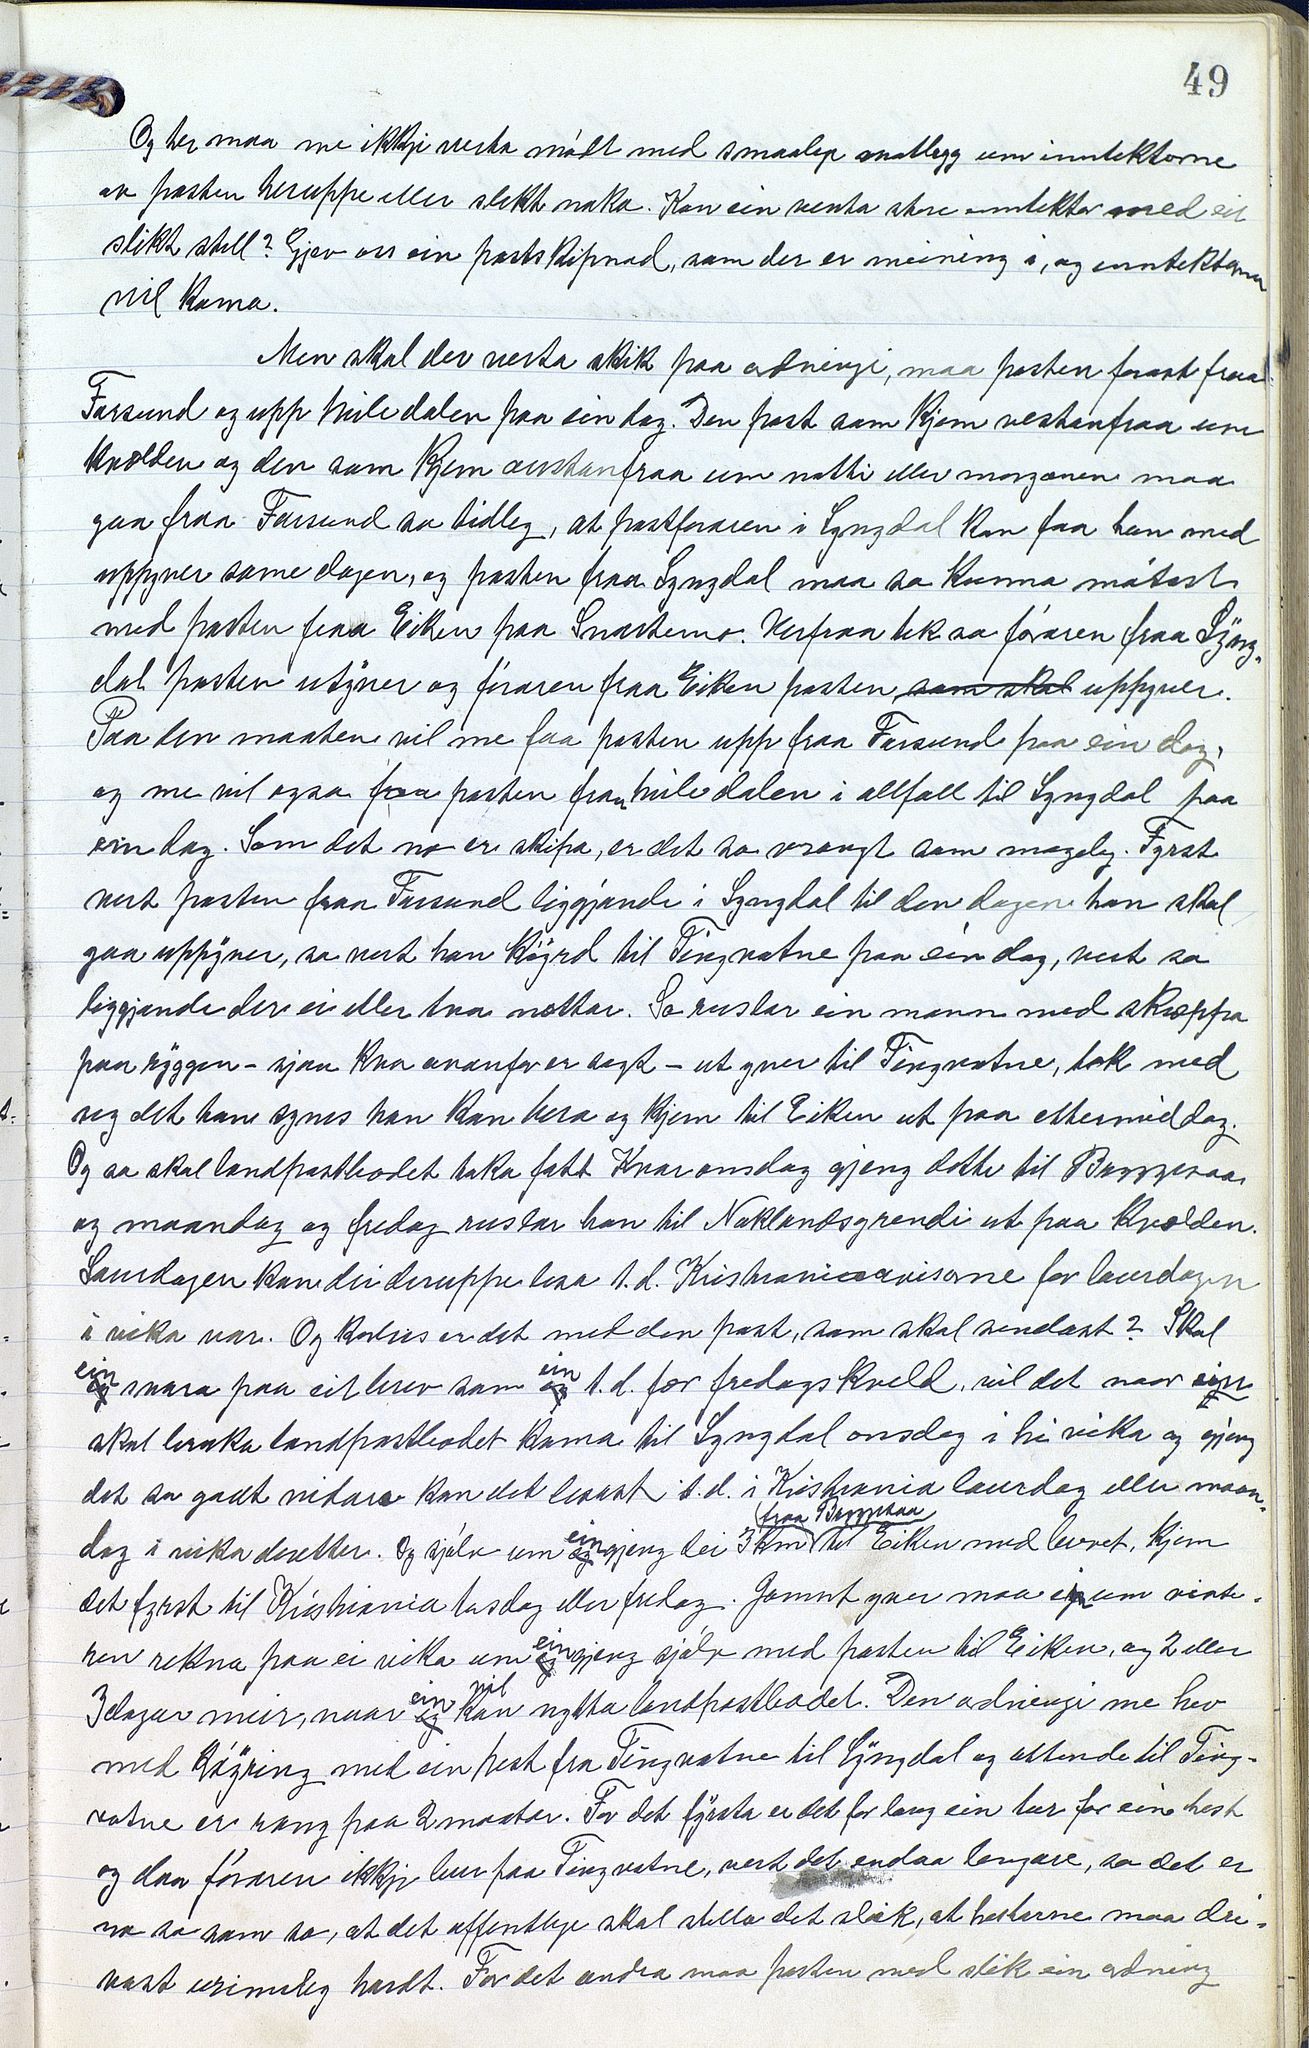 49
Og her maa me ikkje verta mödt med smaaleg motlegg um inntektorne
av posten heruppe eller slikt noko. Kan ein venta store inntekter med eit
slikt stell? Gjev oss ein postskipnad, som der er meining i, og inntektorne
vil koma.
Men skal der verta skik paa ordningi, maa posten förast fraa
Farsund og upp kviledalen paa ein dag. Den post som kjem vestanfraa um
kvælden og den som kjem austanfraa um natti eller morgonen maa
gaa fraa Farsund so tidleg, at postföraren i Lyngdal kan faa han med
uppyver same dagen, og posten fraa Lyngdal maa so kunna mötast
med posten fraa Eiken paa Snartemo. Herfraa tek so föraren fraa Lyng-
dal posten utyver og föraren fraa Eiken posten som skal uppyver.
Paa den maaten vil me faa posten upp fraa Farsund paa ein dag,
og me vil ogso faa posten fraa kviledalen i allfall til Lyngdal paa
ein dag. Som det no er skipa, er det so vrangt som mogeleg. Fyrst
vert posten fraa Farsund liggjande i Lyngdal til den dagen han skal
gaa uppyver, so vert han köyrd til Tingvatne paa ein dag, vert so
liggjande der ei eller tvo nætter. So ruslar ein mann med skreppa
paa ryggen - sjaa kva ovanfor er sagt - ut yver til Tingvatne, tek med
seg det han synes han kan bera og kjem til Eiken ut paa ettermiddag.
Og so skal landpostbodet taka fatt. Kvar onsdag gjeng dette til Byggeraa
og maandag og fredag ruslar han til Noklandsgrendi ut paa kvælden.
Laurdagen kan dei deruppe lesa t.d. Kristianiaavisorne for laurdagen
i vika var. Og korleis er det med den post, som skal sendast? Skal
ein svara paa eit brev som ein t.d. fær fredagskveld, vil det naar ein
skal bruka landpostbodet koma til Lyngdal onsdag i hi vika og gjeng
det so godt vidare kan det lesast t.d. i Kristiania laurdag eller maan-
dag i vika deretter. Og sjölv um ein gjeng dei 3 km (fraa Byggeraa) til Eiken med brevet, kjem
det fyrst til Kristiania tysdag eller fredag. Jamnt yver maa ein um vinte-
ren rekna paa ei vika um ein gjeng sjölv med posten til Eiken, og 2 eller
3 dagar meir, naar ein vil nytta landpostbodet. Den ordningi me hev
med köyring med ein hest fra Tingvatne til Lyngdal og attende til Ting-
vatne er rang paa 2 maatar. For det fyrste er det for lang ein tur for ein hest
og daa föraren ikkje bur paa Tingvatne, vert det endaa lengare, so det er
no so som so, at det offentlege skal stella det slik, at hestarne maa dri-
vast urimeleg hardt. For det andra maa posten med slik ein ordning